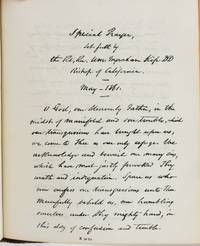 Special Prayer,
Set forth by
the Rt. Rev. Wm. Ingraham Kip, DD
Bishop of California.
May - 1861.
O God, our Heavenly Father, in the
midst of manifold and sore troubles, which
our transgressions have brought upon us,
we come to Thee as our only refuge. We
acknowledge and bewail our many sins,
which have most justly provoked Thy
wrath and indignation. Spare us who
now confess our transgressions unto Thee.
Mercifully behold us, our humbling
ourselves under Thy mighty hand, in
this day of confusion and trouble.